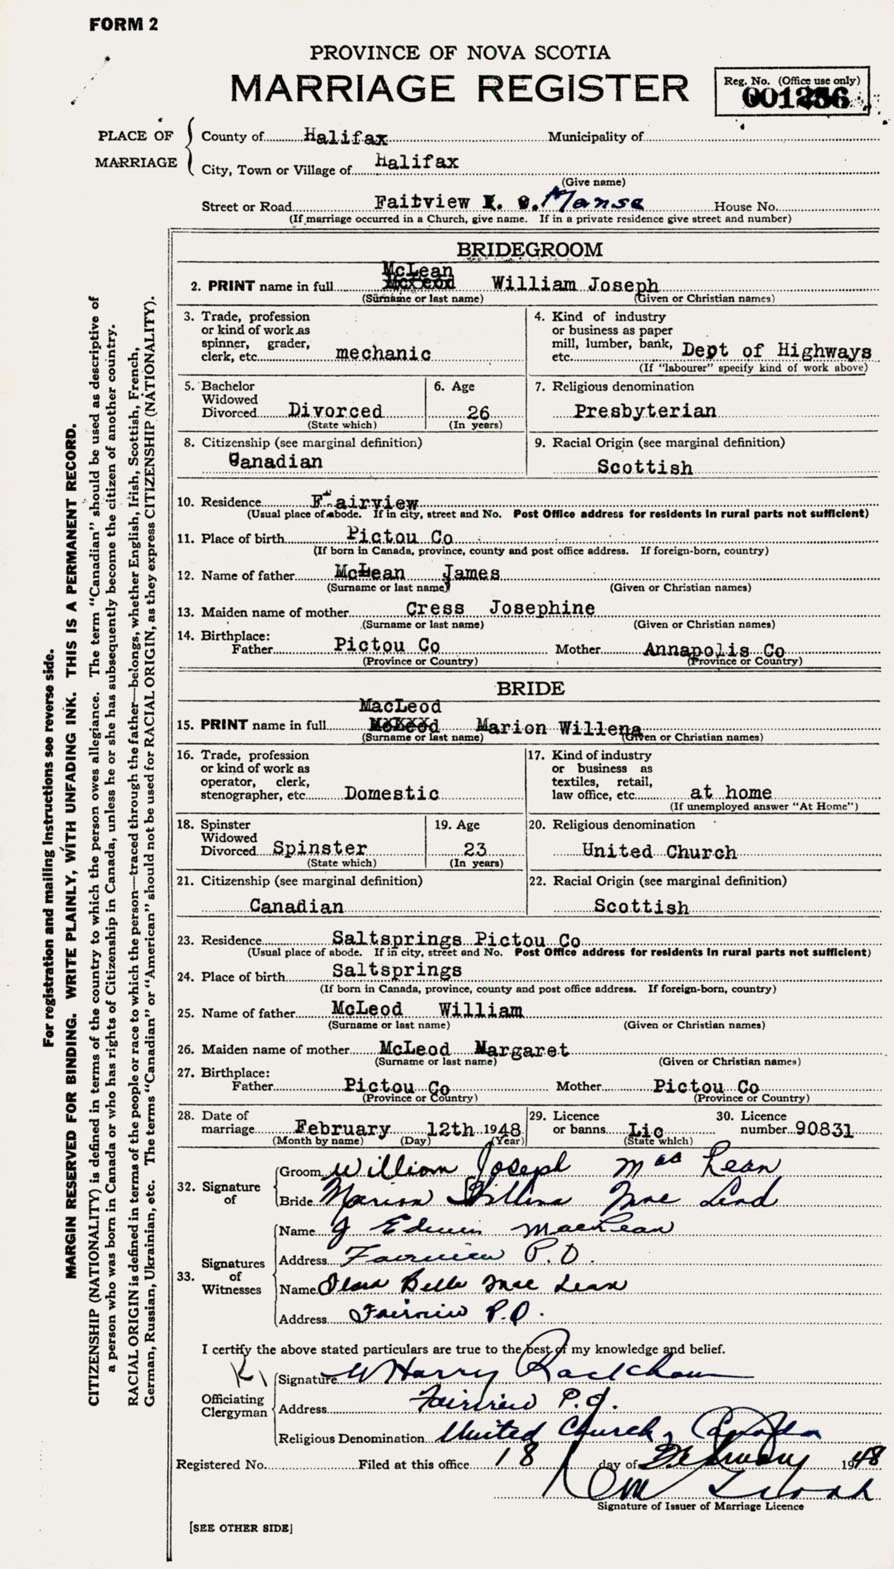 FORM 2
PROVINCE OF NOVA SCOTIA
MARRIAGE REGISTER
Reg. No. (Office use only)
PLACE OF MARRIAGE
County of Halifax Municipality of
City, Town or Village of Halifax
(Give name)
Street or Road Fairview Manse House No.
(If marriage occurred in a Church, give name. If in a private residence give street and number)
BRIDEGROOM
McLean
2. PRINT name in full McLeod William Joseph
(Surname or last name) (Given or Christian names)
3. Trade, profession or kind of work as spinner, grader, clerk, etc. mechanic
4. Kind of industry or business as paper mill, lumber, bank, etc. Dept of Highways
(If "labourer" specify kind of work above)
5. Bachelor Widowed Divorced Divorced
(State which)
6. Age 26
(In years)
7. Religious denomination
Presbyterian
8. Citizenship (see marginal definition)
Canadian
9. Racial Origin (see marginal definition)
Scottish
10. Residence Fairview
(Usual place of abode. If in city, street and No. Post Office address for residents in rural parts not sufficient)
11. Place of birth Pictou Co
(If born in Canada, province, county and post office address. If foreign-born, country)
12. Name of father McLean James
(Surname or last name) (Given or Christian names)
13. Maiden name of mother Cress Josephine
(Surname or last name) (Given or Christian names)
14. Birthplace:
Father Pictou Co Mother Annapolis Co
(Province or Country) (Province or Country)
BRIDE
MacLeod
15. PRINT name in full McLeod Marion Willena
(Surname or last name) (Given or Christian names)
16. Trade, profession or kind of work as operator, clerk, stenographer, etc. Domestic
17. Kind of industry or business as textiles, retail, law office, etc. at home
(If unemployed answer "At Home")
18. Spinster Widowed Divorced Spinster
(State which)
19. Age 23
(In years)
20. Religious denomination
United Church
21. Citizenship (see marginal definition)
Canadian
22. Racial Origin (see marginal definition)
Scottish
23. Residence Saltsprings Pictou Co
(Usual place of abode. If in city, street and No. Post Office address for residents in rural parts not sufficient)
24. Place of birth Saltsprings
(If born in Canada, province, county and post office address. If foreign-born, country)
25. Name of father McLeod William
(Surname or last name) (Given or Christian names)
26. Maiden name of mother McLeod Margaret
(Surname or last name) (Given or Christian names)
27. Birthplace:
Father Pictou Co Mother Pictou Co
(Province or Country) (Province or Country)
28. Date of marriage February 12th 1948
(Month by name) (Day) (Year)
29. Licence or banns Lic
(State which)
30. Licence number 90831
32. Signature of
Groom William Joseph MacLean
Bride Marion Willena MacLeod
33. Signatures of Witnesses
Name J Edwin MacLean
Address Fairview P.O.
Name Flora Belle MacLean
Address Fairview P.O.
I certify the above stated particulars are true to the best of my knowledge and belief.
Officiating Clergyman
Signature W Harry Rackham
Address Fairview P.O.
Religious Denomination United Church, Canada
Registered No. Filed at this office 18 day of February 1948
Signature of Issuer of Marriage Licence
[SEE OTHER SIDE]
For registration and mailing instructions see reverse side.
MARGIN RESERVED FOR BINDING. WRITE PLAINLY, WITH UNFADING INK. THIS IS A PERMANENT RECORD.
CITIZENSHIP (NATIONALITY) is defined in terms of the country to which the person owes allegiance. The term "Canadian" should be used as descriptive of
a person who was born in Canada or who has rights of Citizenship in Canada, unless he or she has subsequently become the citizen of another country.
RACIAL ORIGIN is defined in terms of the people or race to which the person—traced through the father—belongs, whether English, Irish, Scottish, French,
German, Russian, Ukrainian, etc. The terms "Canadian" or "American" should not be used for RACIAL ORIGIN, as they express CITIZENSHIP (NATIONALITY).